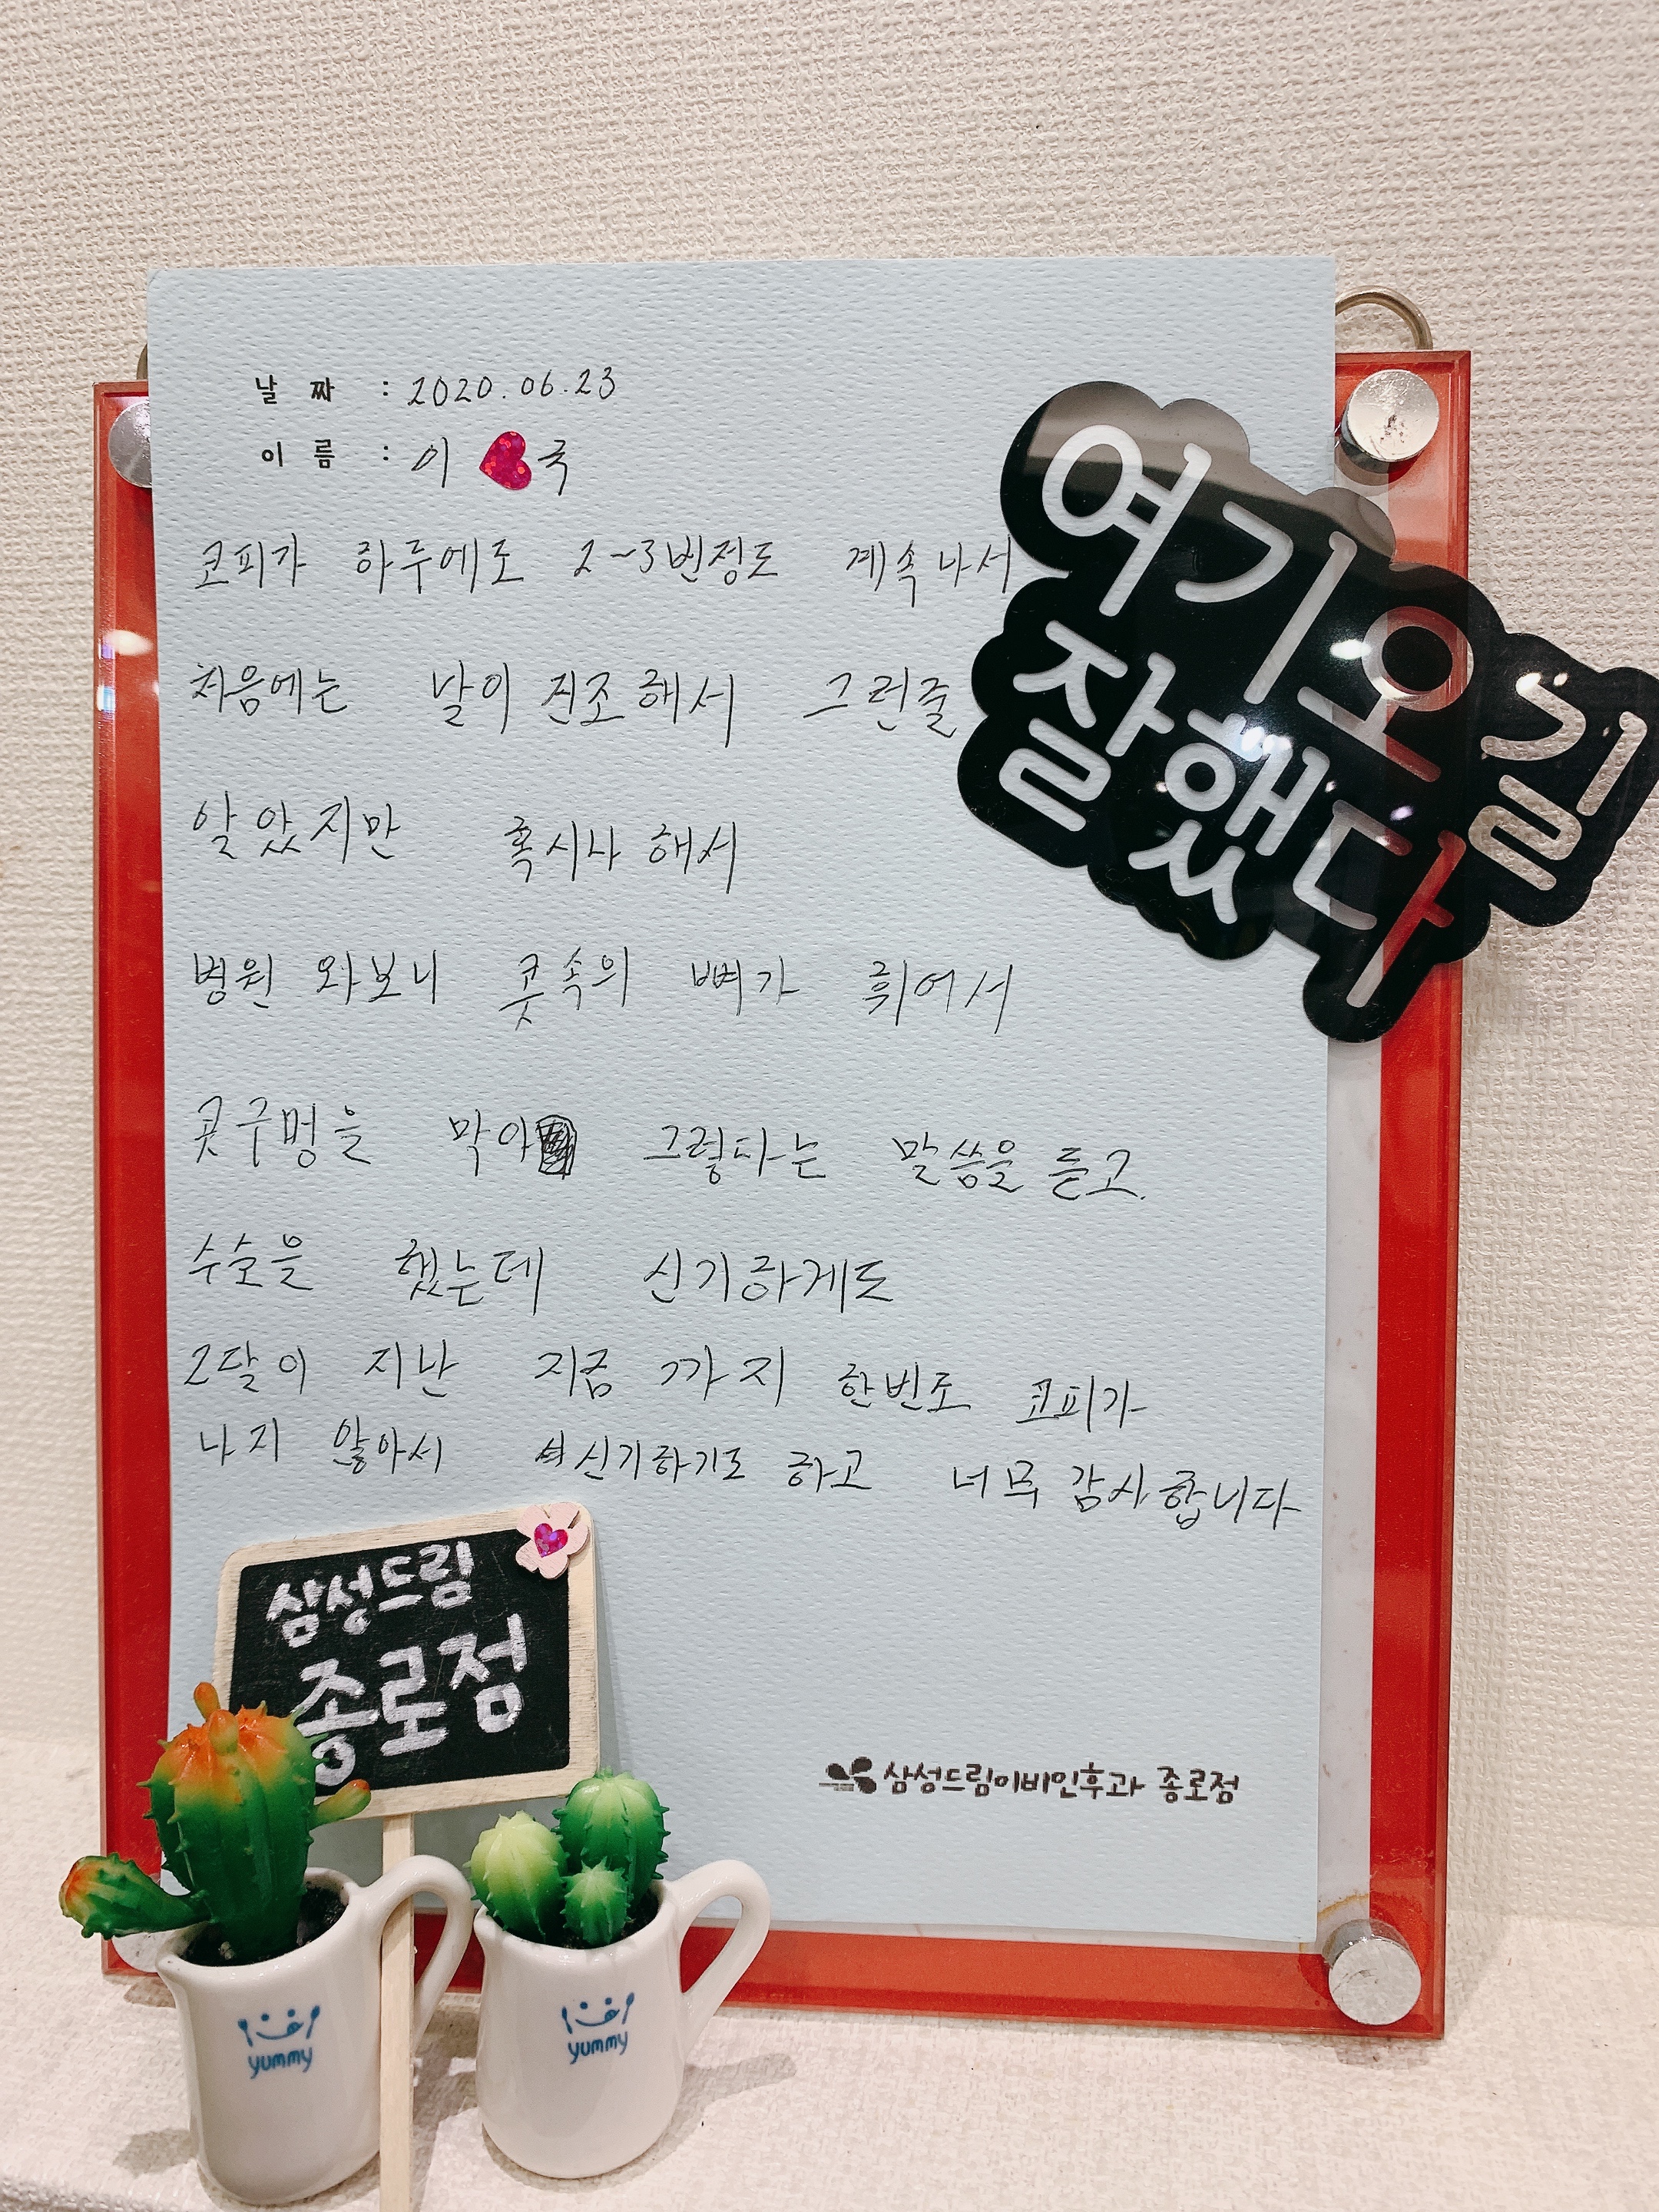 날 짜 : 2020.06.23
이 름 : 이 국
코피가 하루에도 2~3번정도 계속 나서
처음에는 날이 건조해서 그런줄
알았지만 혹시나 해서
병원 와보니 콧속의 뼈가 휘어서
콧구멍을 막아 그렇다는 말씀을 듣고.
수술을 했는데 신기하게도
2달이 지난 지금 까지 한번도 코피가
나지 않아서 신기하기도 하고 너무 감사합니다
여기오길
잘했다
삼성드림
종로점
삼성드림이비인후과 종로점
yummy
yummy